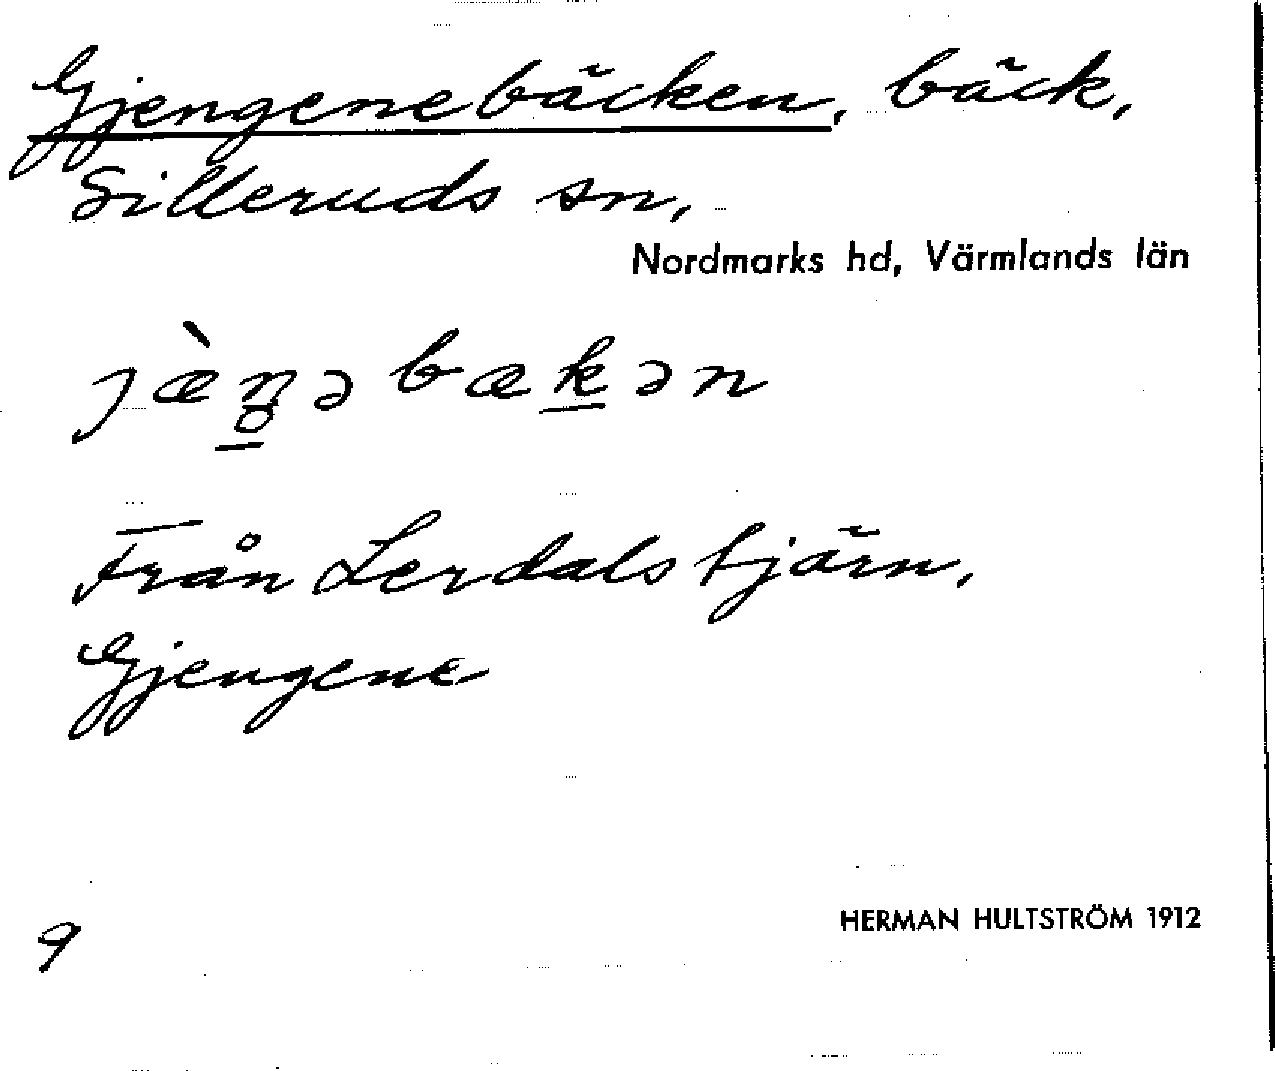 Gjengenebäcken, bäck,
Silleruds sn,
Nordmarks hd, Värmlands län
jæ̀ŋ̲əbæk̲ən
Från Lerdalstjärn,
Gjengene
HERMAN HULTSTRÖM 1912
9